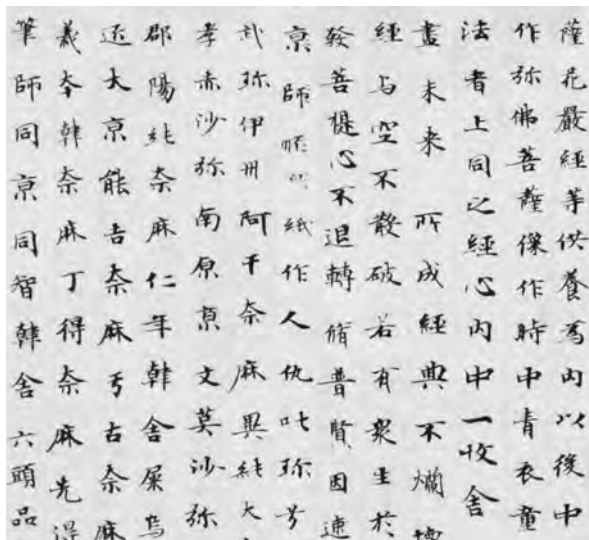 薩花嚴經等供養為內以後中
作弥佛菩薩像作時中青衣童
法者上同之經心內中一收舍
盡未来 所成經典不爛壞
經与空不散破若有衆生於
發菩提心不退轉脩普賢因速
京師 紙作人仇叱弥兮
武弥伊州阿干奈麻異純大
孝赤沙弥南原京文莫沙弥
郡陽純奈麻仁年韓舍屎烏
大京能吉奈麻丐古奈麻
義夲韓奈麻丁得奈麻先得
筆師同京同智韓舍六頭品